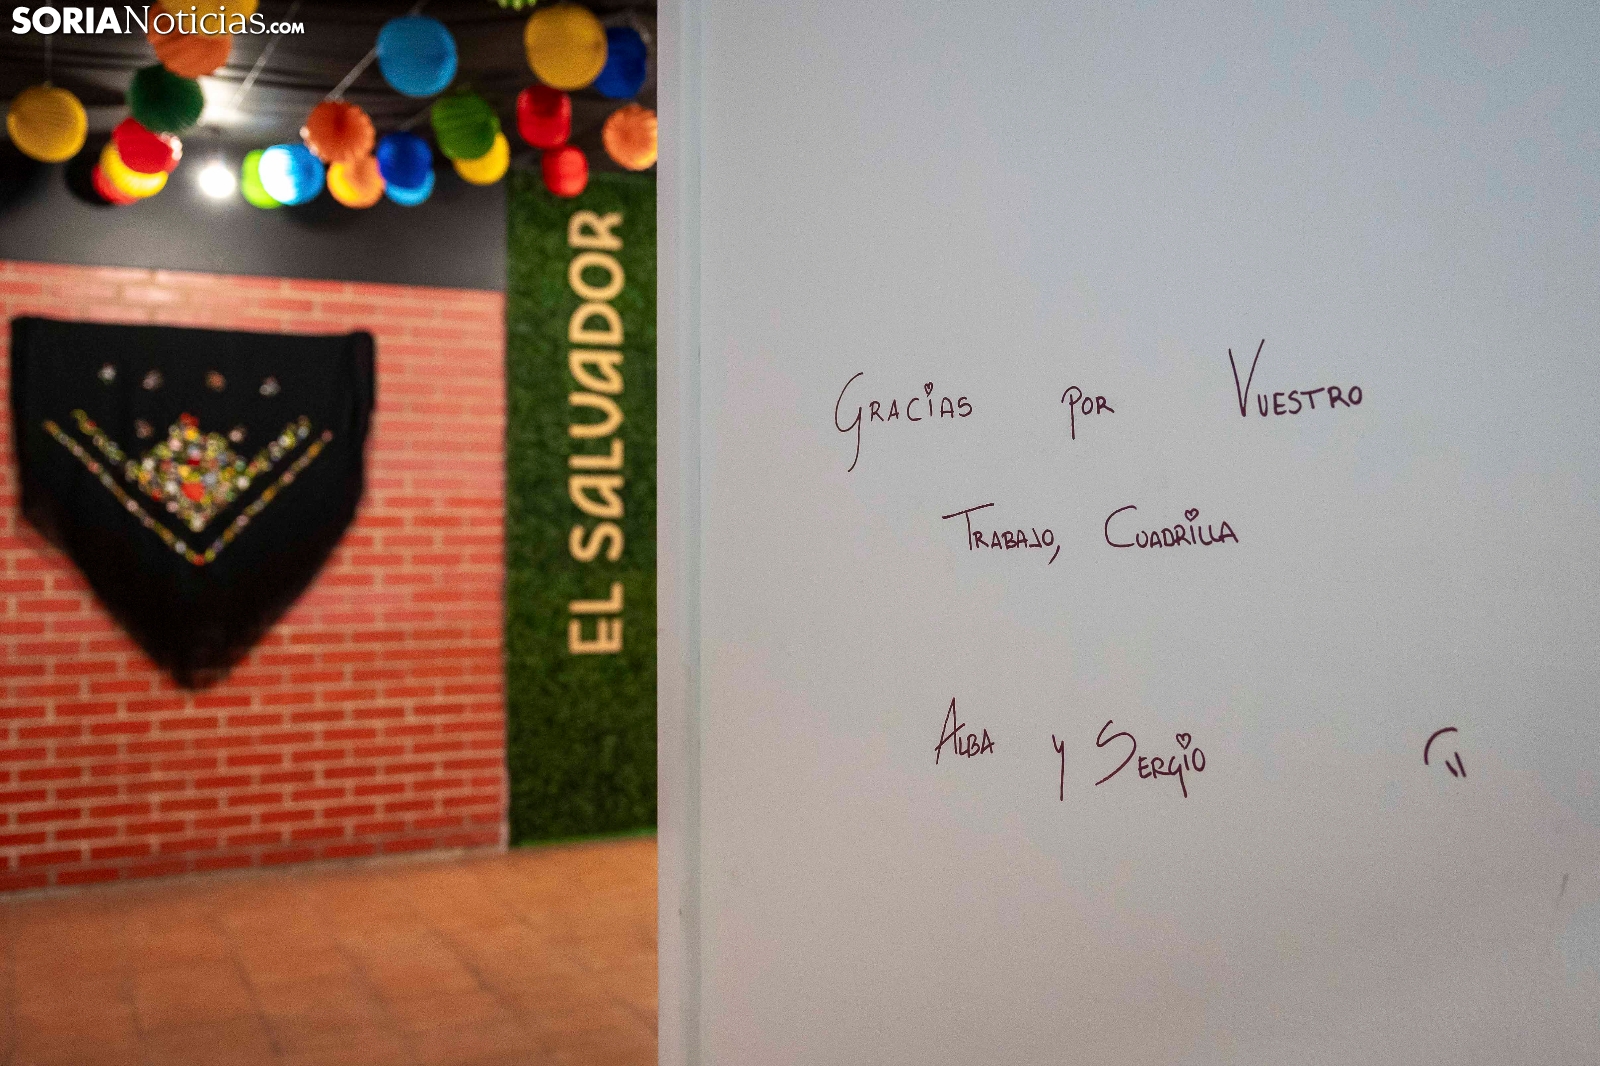 SORIANoticias.com
EL SALVADOR
GRACiAS POR VUESTRO
TRABAJO, CUADRiLLA
ALBA y SERGiO